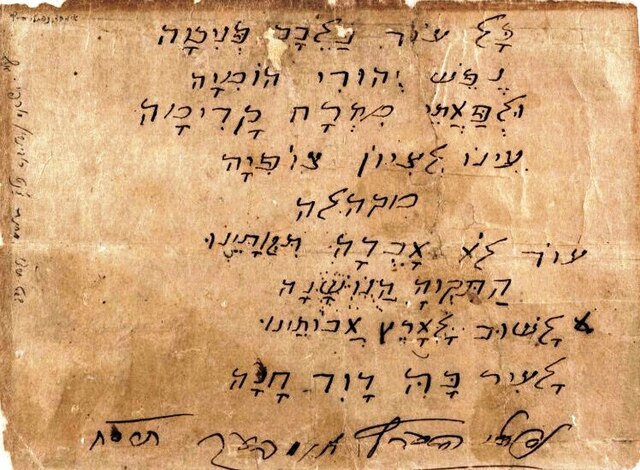 כָּל עוֹד בַּלֵּבָב פְּנִימָה
נֶפֶש יְהוּדִי הוֹמִיָה
וּלְפַאֲתֵי מִזְרָח קָדִימָה
עֵינוֹ לְצִיוֹן צוֹפִיָּה
מקהלה
עוֹד לֹא אָבְדָה תִקְוָתֵינוּ
הַתִּקְוָה הַנוֹשָׁנָה
לָשׁוּב לְאֶרֶץ אֲבוֹתֵינוּ
לָעִיר בָּהּ דָוִד חָנָה
נפתלי הערץ אימבער תרס״ח